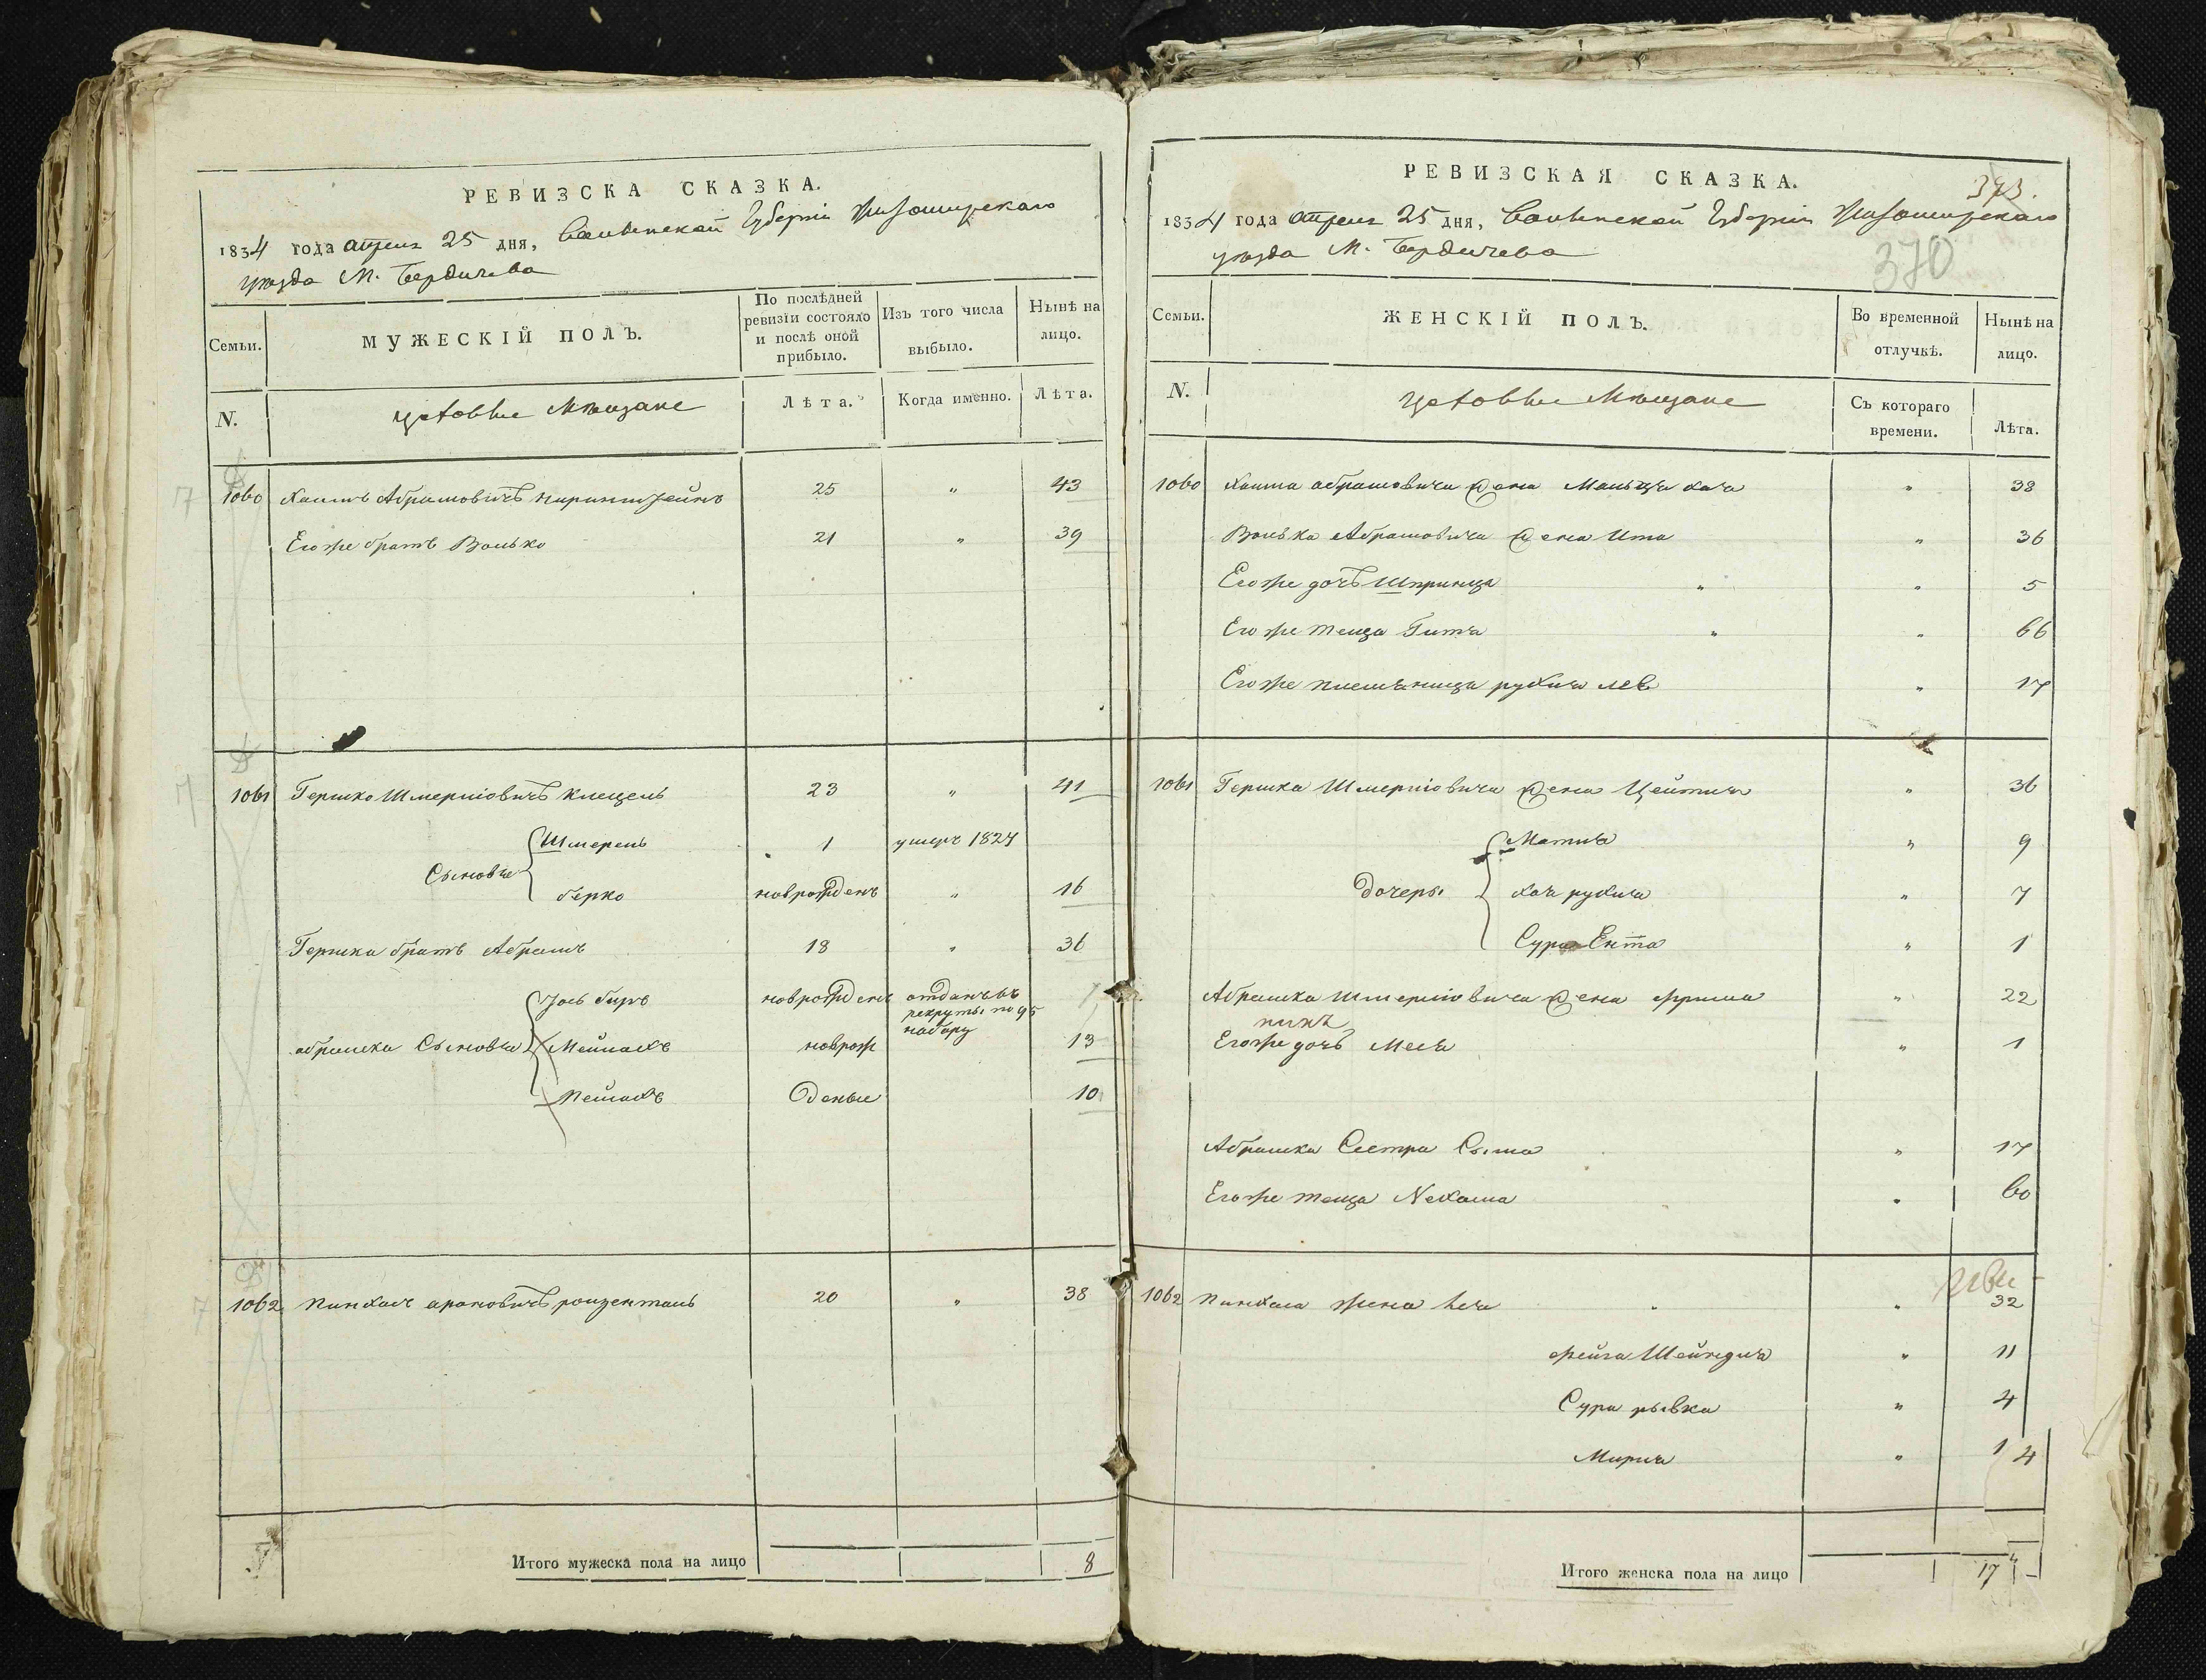 РЕВИЗСКА СКАЗКА.
1834 года апреля 25 дня, Волынской Губерніи Житомирскаго
уезда М. Бердичева
Семьи.
МУЖЕСКІЙ ПОЛЪ.
По послѣдней
ревизіи состояло
и послѣ оной
прибыло.
Изъ того числа
выбыло.
Нынѣ на
лицо.
N.
цеховые Мещане
Лѣта.
Когда именно.
Лѣта.
1060 Хаимъ Абрамовичъ 25 " 43
Его же братъ Волько 21 " 39
1061 Гершко Шмерліовичъ Клецель 23 " 41
Шмерель 1 умеръ 1824
Сыновье
Берко новрожденъ " 16
Гершка братъ Абрамъ 18 " 36
Іось новрожденъ отданъ въ
рекруты по 95
набару
абрамка Сыновья Мейлахъ новрож 13
Пейсахъ деные 10
1062 Пинхасъ ароновичъ розенталь 20 " 38
Итого мужеска пола на лицо 8
РЕВИЗСКАЯ СКАЗКА.
373.
1834 года апреля 25 дня, Волынской Губерніи Житомирскаго
уезда М. Бердичева
370
Семьи.
ЖЕНСКІЙ ПОЛЪ.
Во временной
отлучкѣ.
Нынѣ на
лицо.
N.
цеховые Мещане
Съ котораго
времени.
Лѣта.
1060 Хаима абрамовича жена Мальця хая " 38
Волька Абрамовича жена Ита " 36
Его же дочъ Шпринца " " 5
Его же теща Гитля " " 66
Его же племяница рухля лея " 17
1061 Гершка Шмерліовича жена Цейтля " 36
Матля " 9
Дочеры хая рухля " 7
Сура Ента " 1
Абрамка Шмерліовича жена фрима " 22
Его же дочъ Меля " 1
Абрамка Сестра Сыма " 17
Его же теща Нехама " 60
1062 Пинхаса жена " " 32
фейга Шейндля " 11
Сура рывка " 4
Мирля " 1 4
Итого женска пола на лицо 17